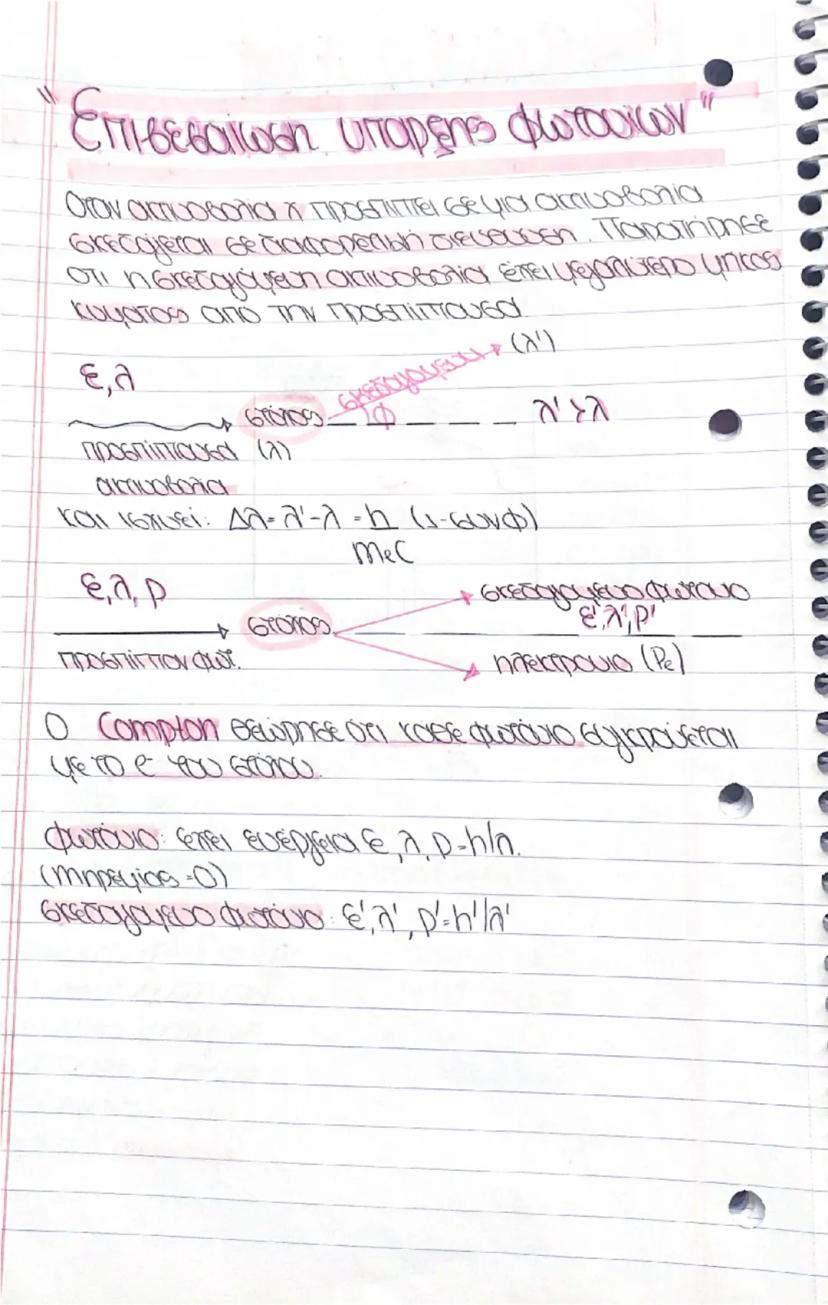 "Επιβεβαίωση υπαρξης φωτονίων"
Οταν ακτινοβολία λ προσπίπτει σε μια ακτινοβολία
σκεδάζεται σε διαφορετική διεύθυνση. Παρατήρησε
οτι η σκεδαζόμενη ακτινοβολία έχει μεγαλύτερο μήκος
κύματος από την προσπίπτουσα
ε, λ
σκεδαζόμενη (λ')
στόχος φ λ' > λ
προσπίπτουσα (λ)
ακτινοβολία
και ισχυεί: Δλ = λ'-λ = h (1-συνφ)
meC
ε, λ, p
σκεδαζόμενο φωτόνιο
ε', λ', p'
στόχος
προσπίπτον φωτ.
ηλεκτρόνιο (Pe)
Ο Compton θεώρησε ότι κάθε φωτόνιο συγκρούεται
με το e του στόχου.
φωτόνιο: έχει ενέργεια ε, λ, p=h/λ.
(mηρεμίας=0)
σκεδαζόμενο φωτόνιο: ε', λ', p'=h'/λ'